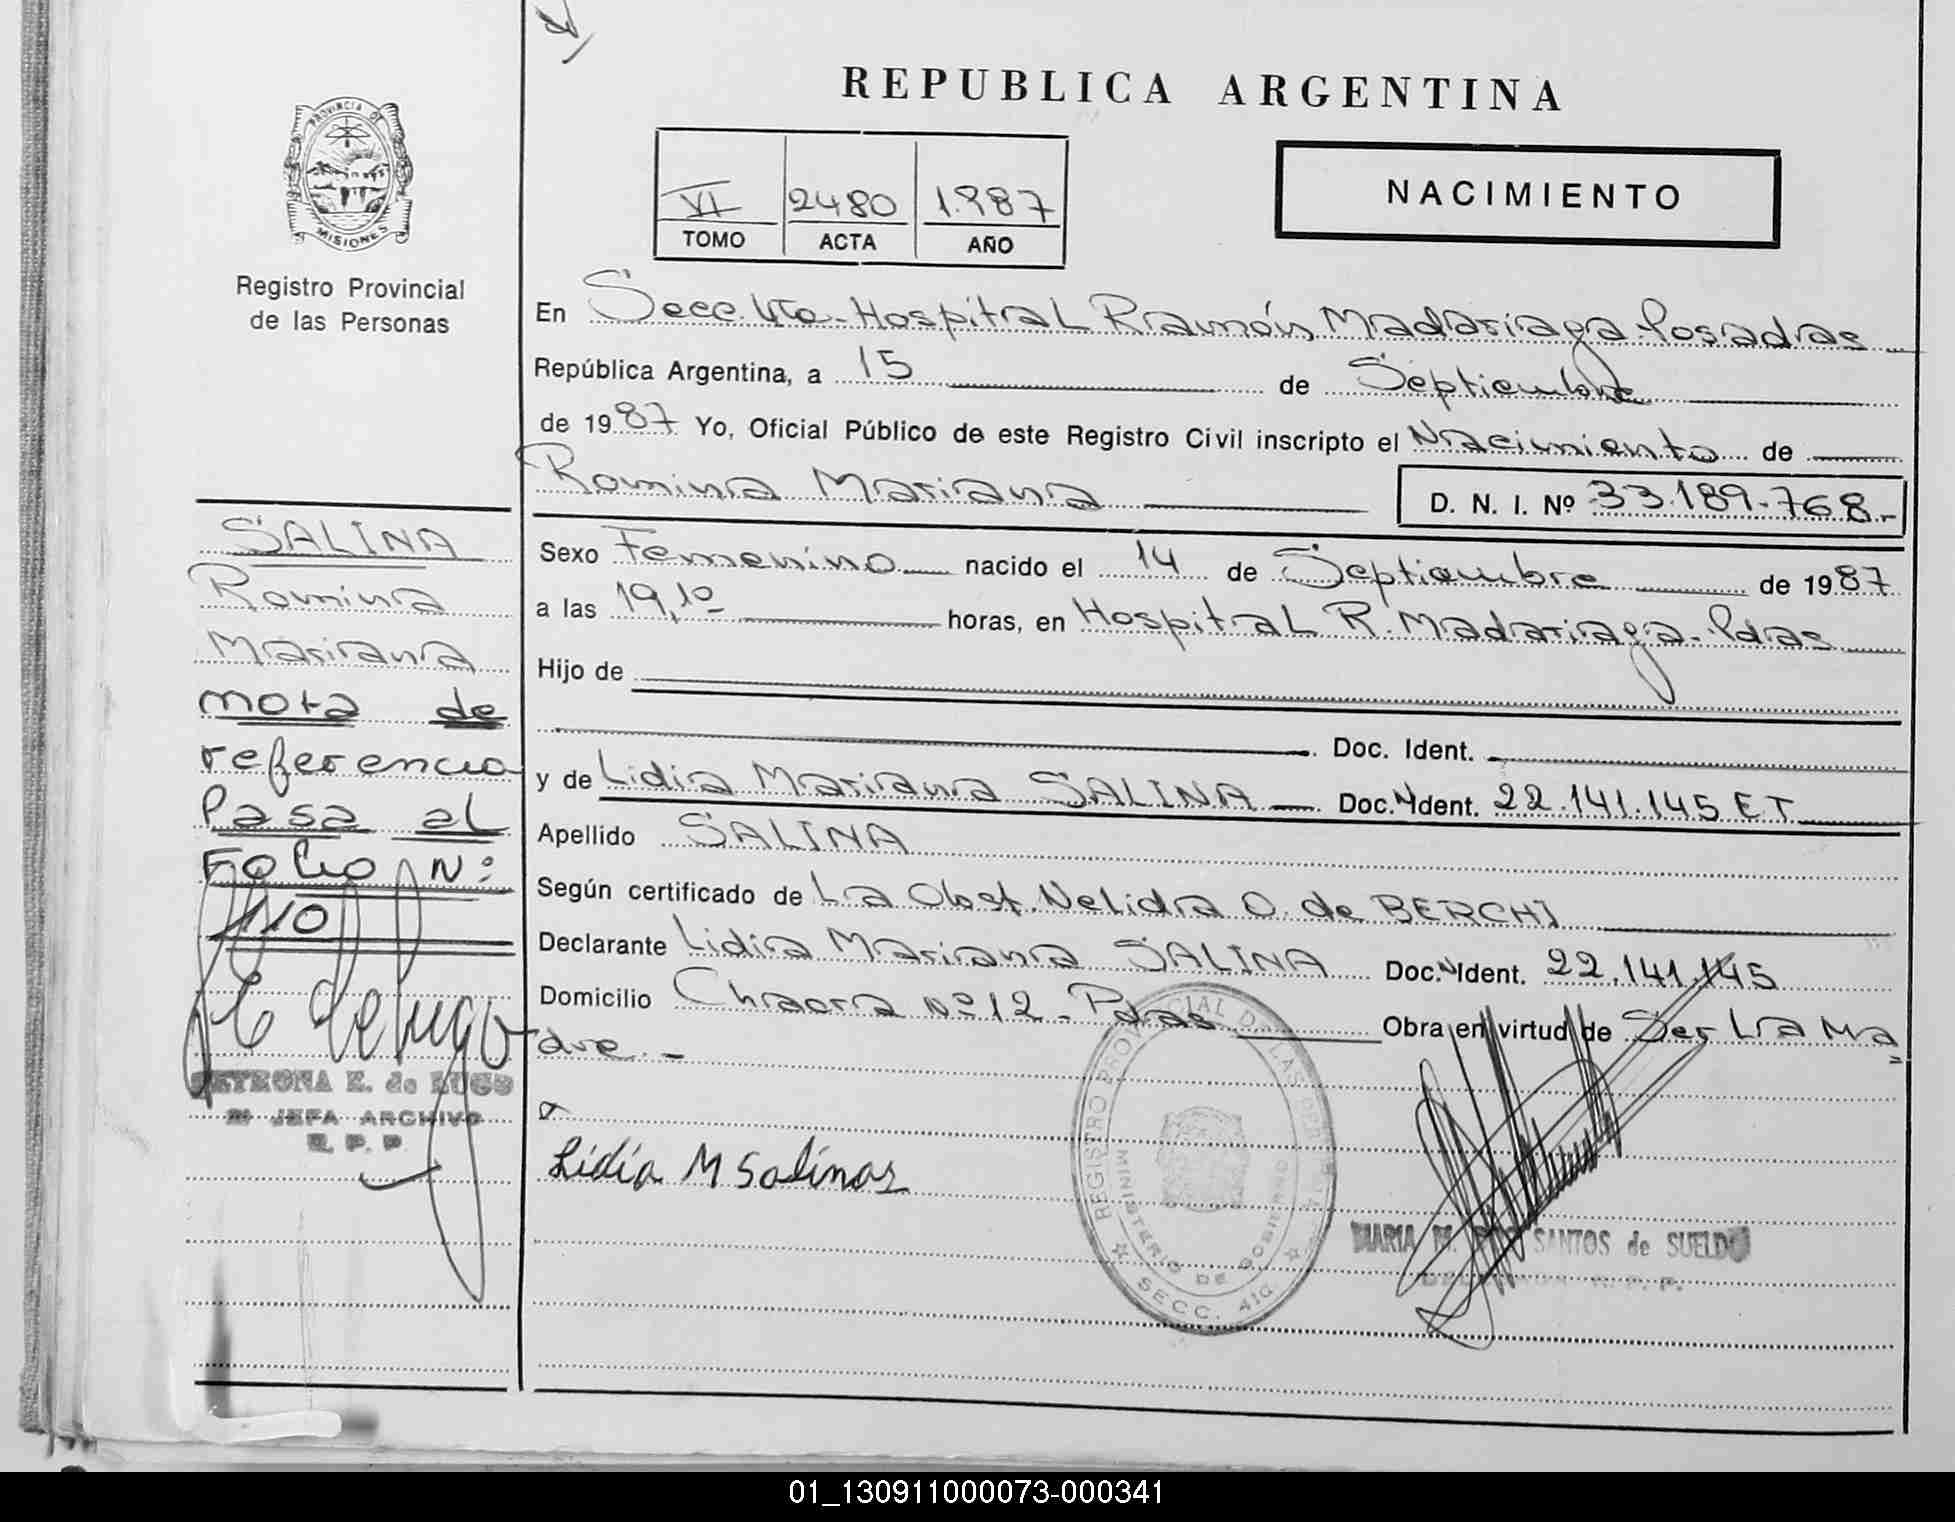 REPUBLICA ARGENTINA
PROVINCIA DE
MISIONES
Registro Provincial
de las Personas
VI 2480 1.987
TOMO ACTA AÑO
NACIMIENTO
En Secc. 4ta. Hospital Ramón Madariaga. Posadas
República Argentina, a 15 de Septiembre
de 1987 Yo, Oficial Público de este Registro Civil inscripto el Nacimiento de
Romina Mariana D. N. I. Nº 33.189.768.-
Sexo Femenino nacido el 14 de Septiembre de 1987
a las 19,10 horas, en Hospital R. Madariaga. Pdas
Hijo de
Doc. Ident.
y de Lidia Mariana SALINA Doc. Ident. 22.141.145 ET.
Apellido SALINA
Según certificado de La Obst. Nelida O. de BERCHI
Declarante Lidia Mariana SALINA Doc. Ident. 22.141.145
Domicilio Chacra Nº 12 - Pdas Obra en virtud de Ser La Ma
dre.-
Lidia M Salinas
REGISTRO PROVINCIAL DE LAS PERSONAS
MINISTERIO DE GOBIERNO
SECC. 4ta
MARIA M. DOS SANTOS de SUELDO
R. P. P.
SALINA
Romina
Mariana
nota de
referencia
Pasa al
Folio Nº
110
PETRONA E. de LUGO
JEFA ARCHIVO
R. P. P.
01_130911000073-000341